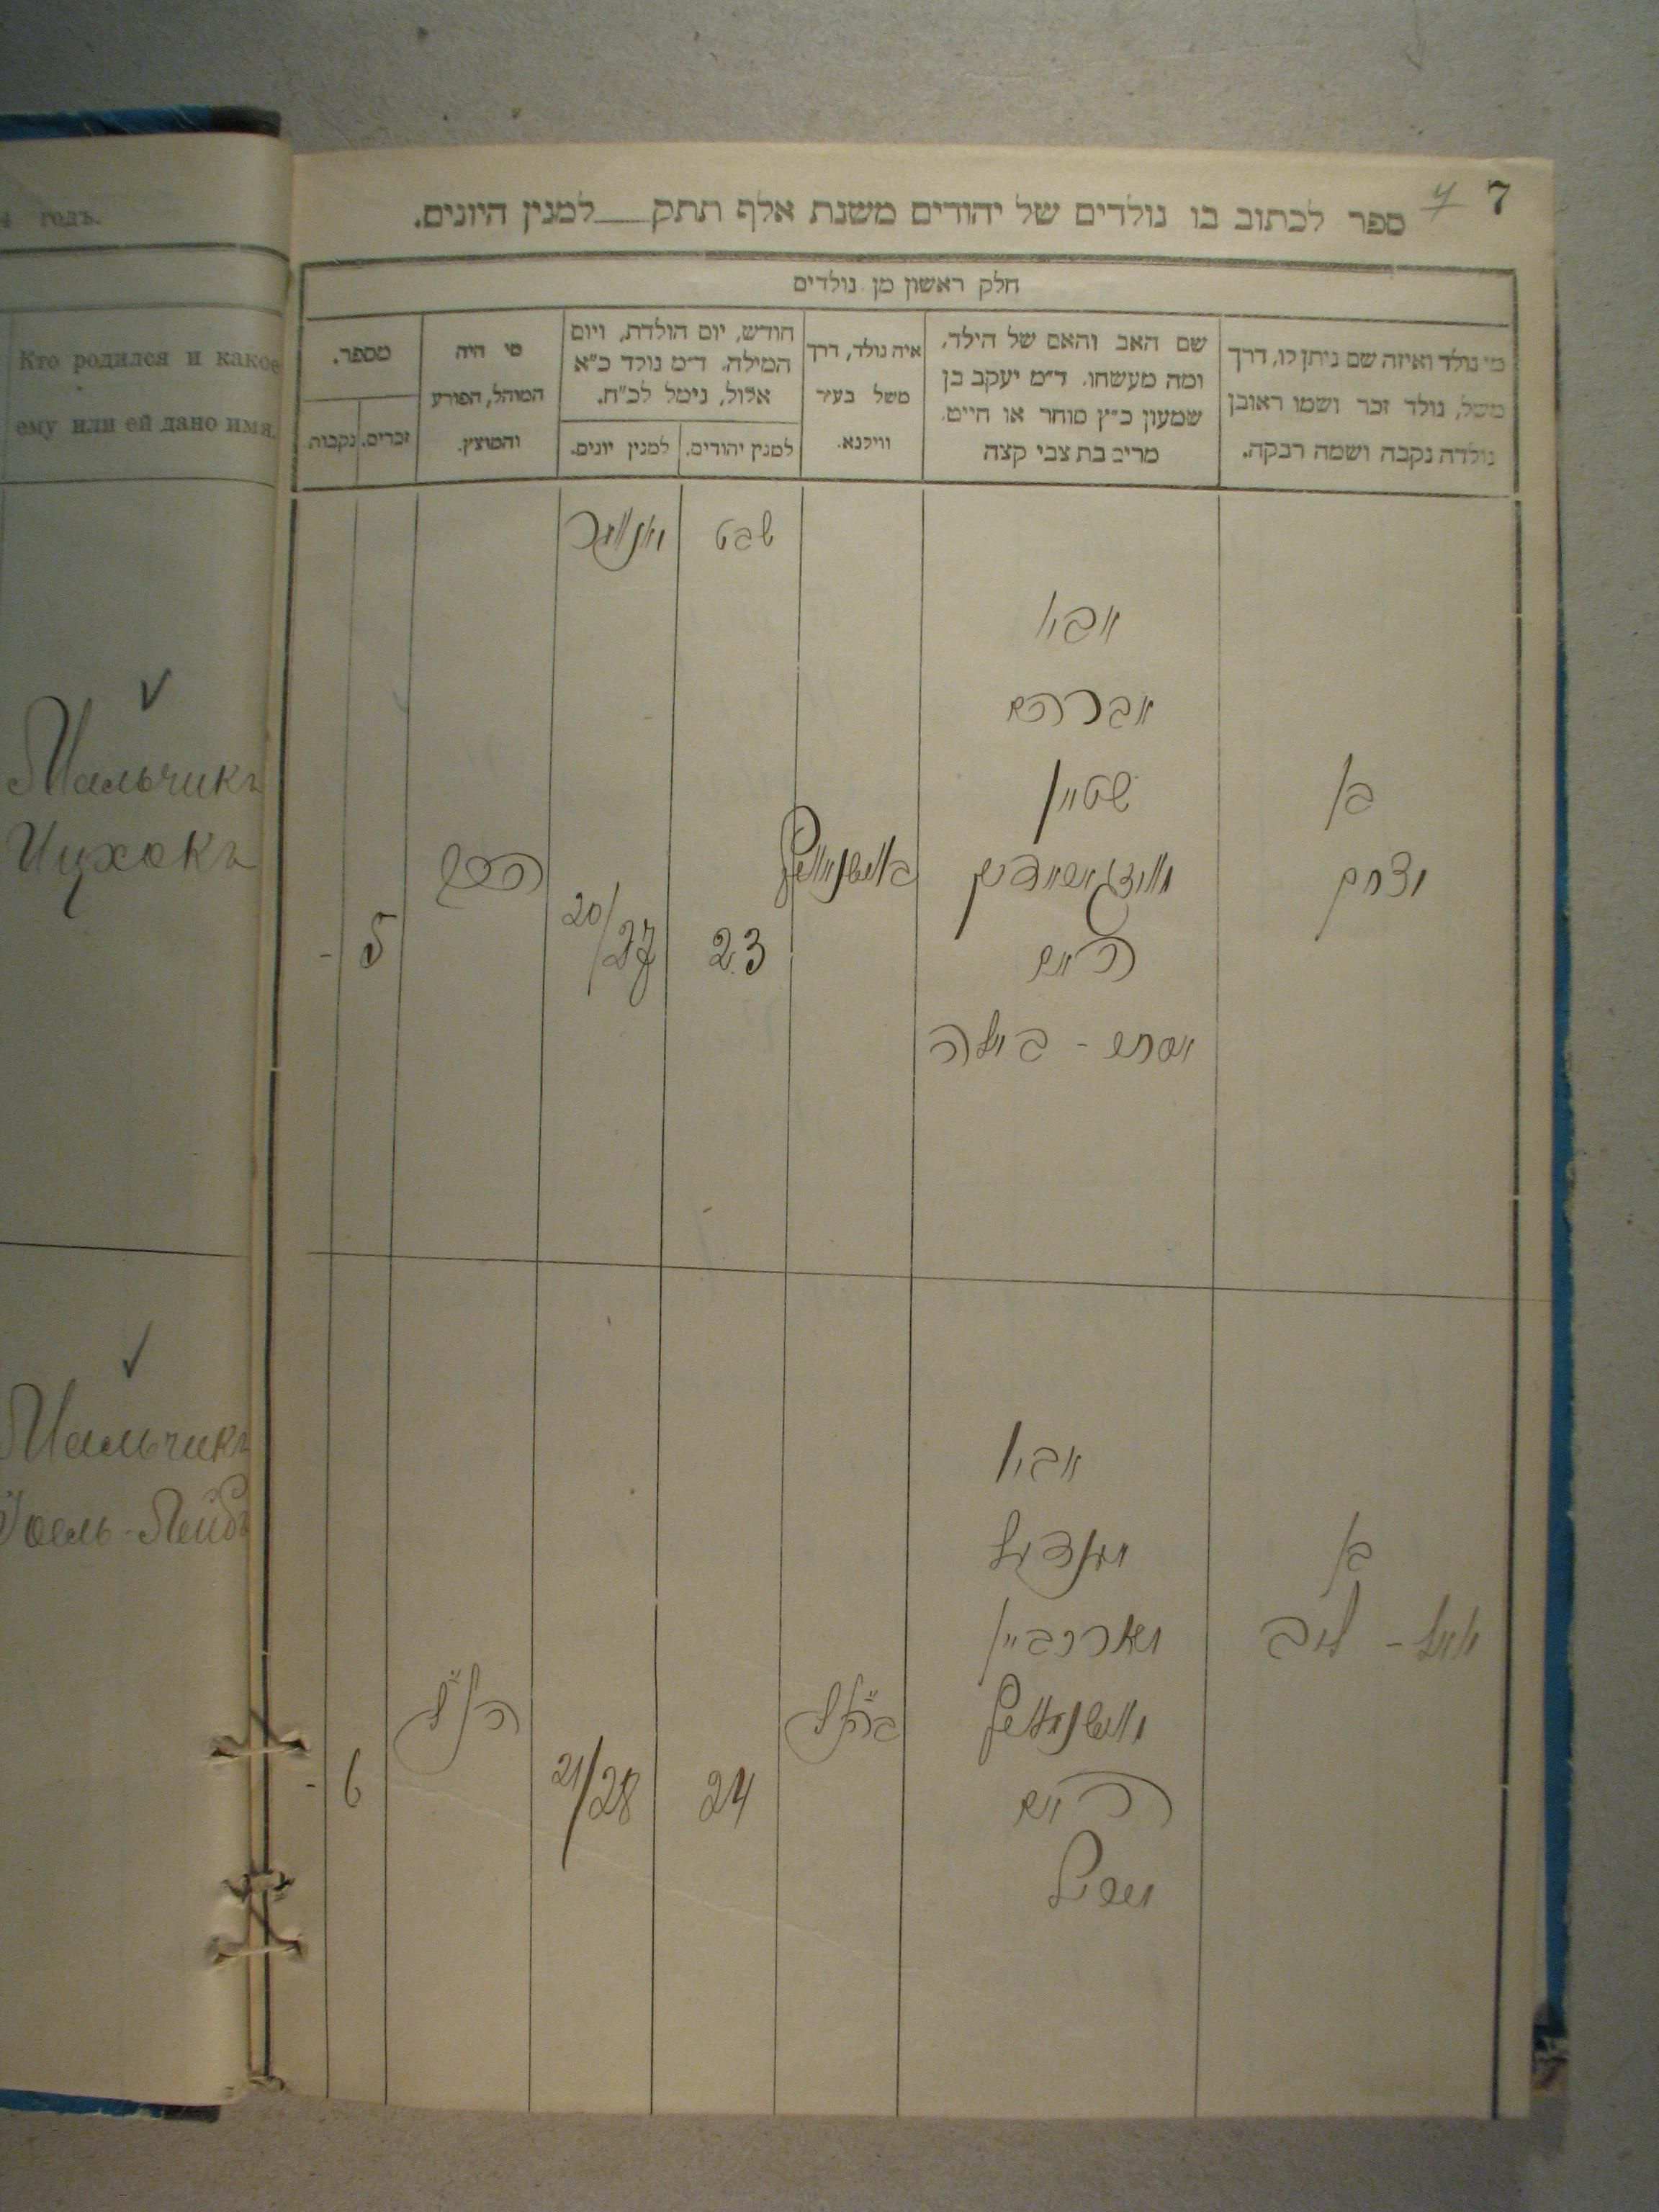 годъ.
Кто родился и какое
ему или ей дано имя.
Мальчикъ
Ицхокъ
Мальчикъ
Іоель-Лейбъ
7
ספר לכתוב בו נולדים של יהודים משנת אלף תתק למנין היונים.
חלק ראשון מן נולדים
מי נולד ואיזה שם ניתן לו, דרך
משל, נולד זכר ושמו ראובן
נולדה נקבה ושמה רבקה.
שם האב והאם של הילד,
ומה מעשהו. ד״מ יעקב בן
שמעון כ״ץ סוחר או חייט.
מרים בת צבי קצה
איה נולד, דרך
משל בעיר
ווילנא.
חודש, יום הולדת, ויום
המילה. ד״מ נולד כ״א
אלול, נימל לכ״ח.
למנין יהודים.
למנין יונים.
מי היה
המוהל, הפורע
והמוצץ.
מספר.
זכרים.
נקבות
שבט
יאנואר
בן
יצחק
אביו
אברהם
שטיין
האם
23
20/27
5
-
בן
יואל - ליב
אביו
מענדיל
האם
24
21/28
הנ״ל
6
-